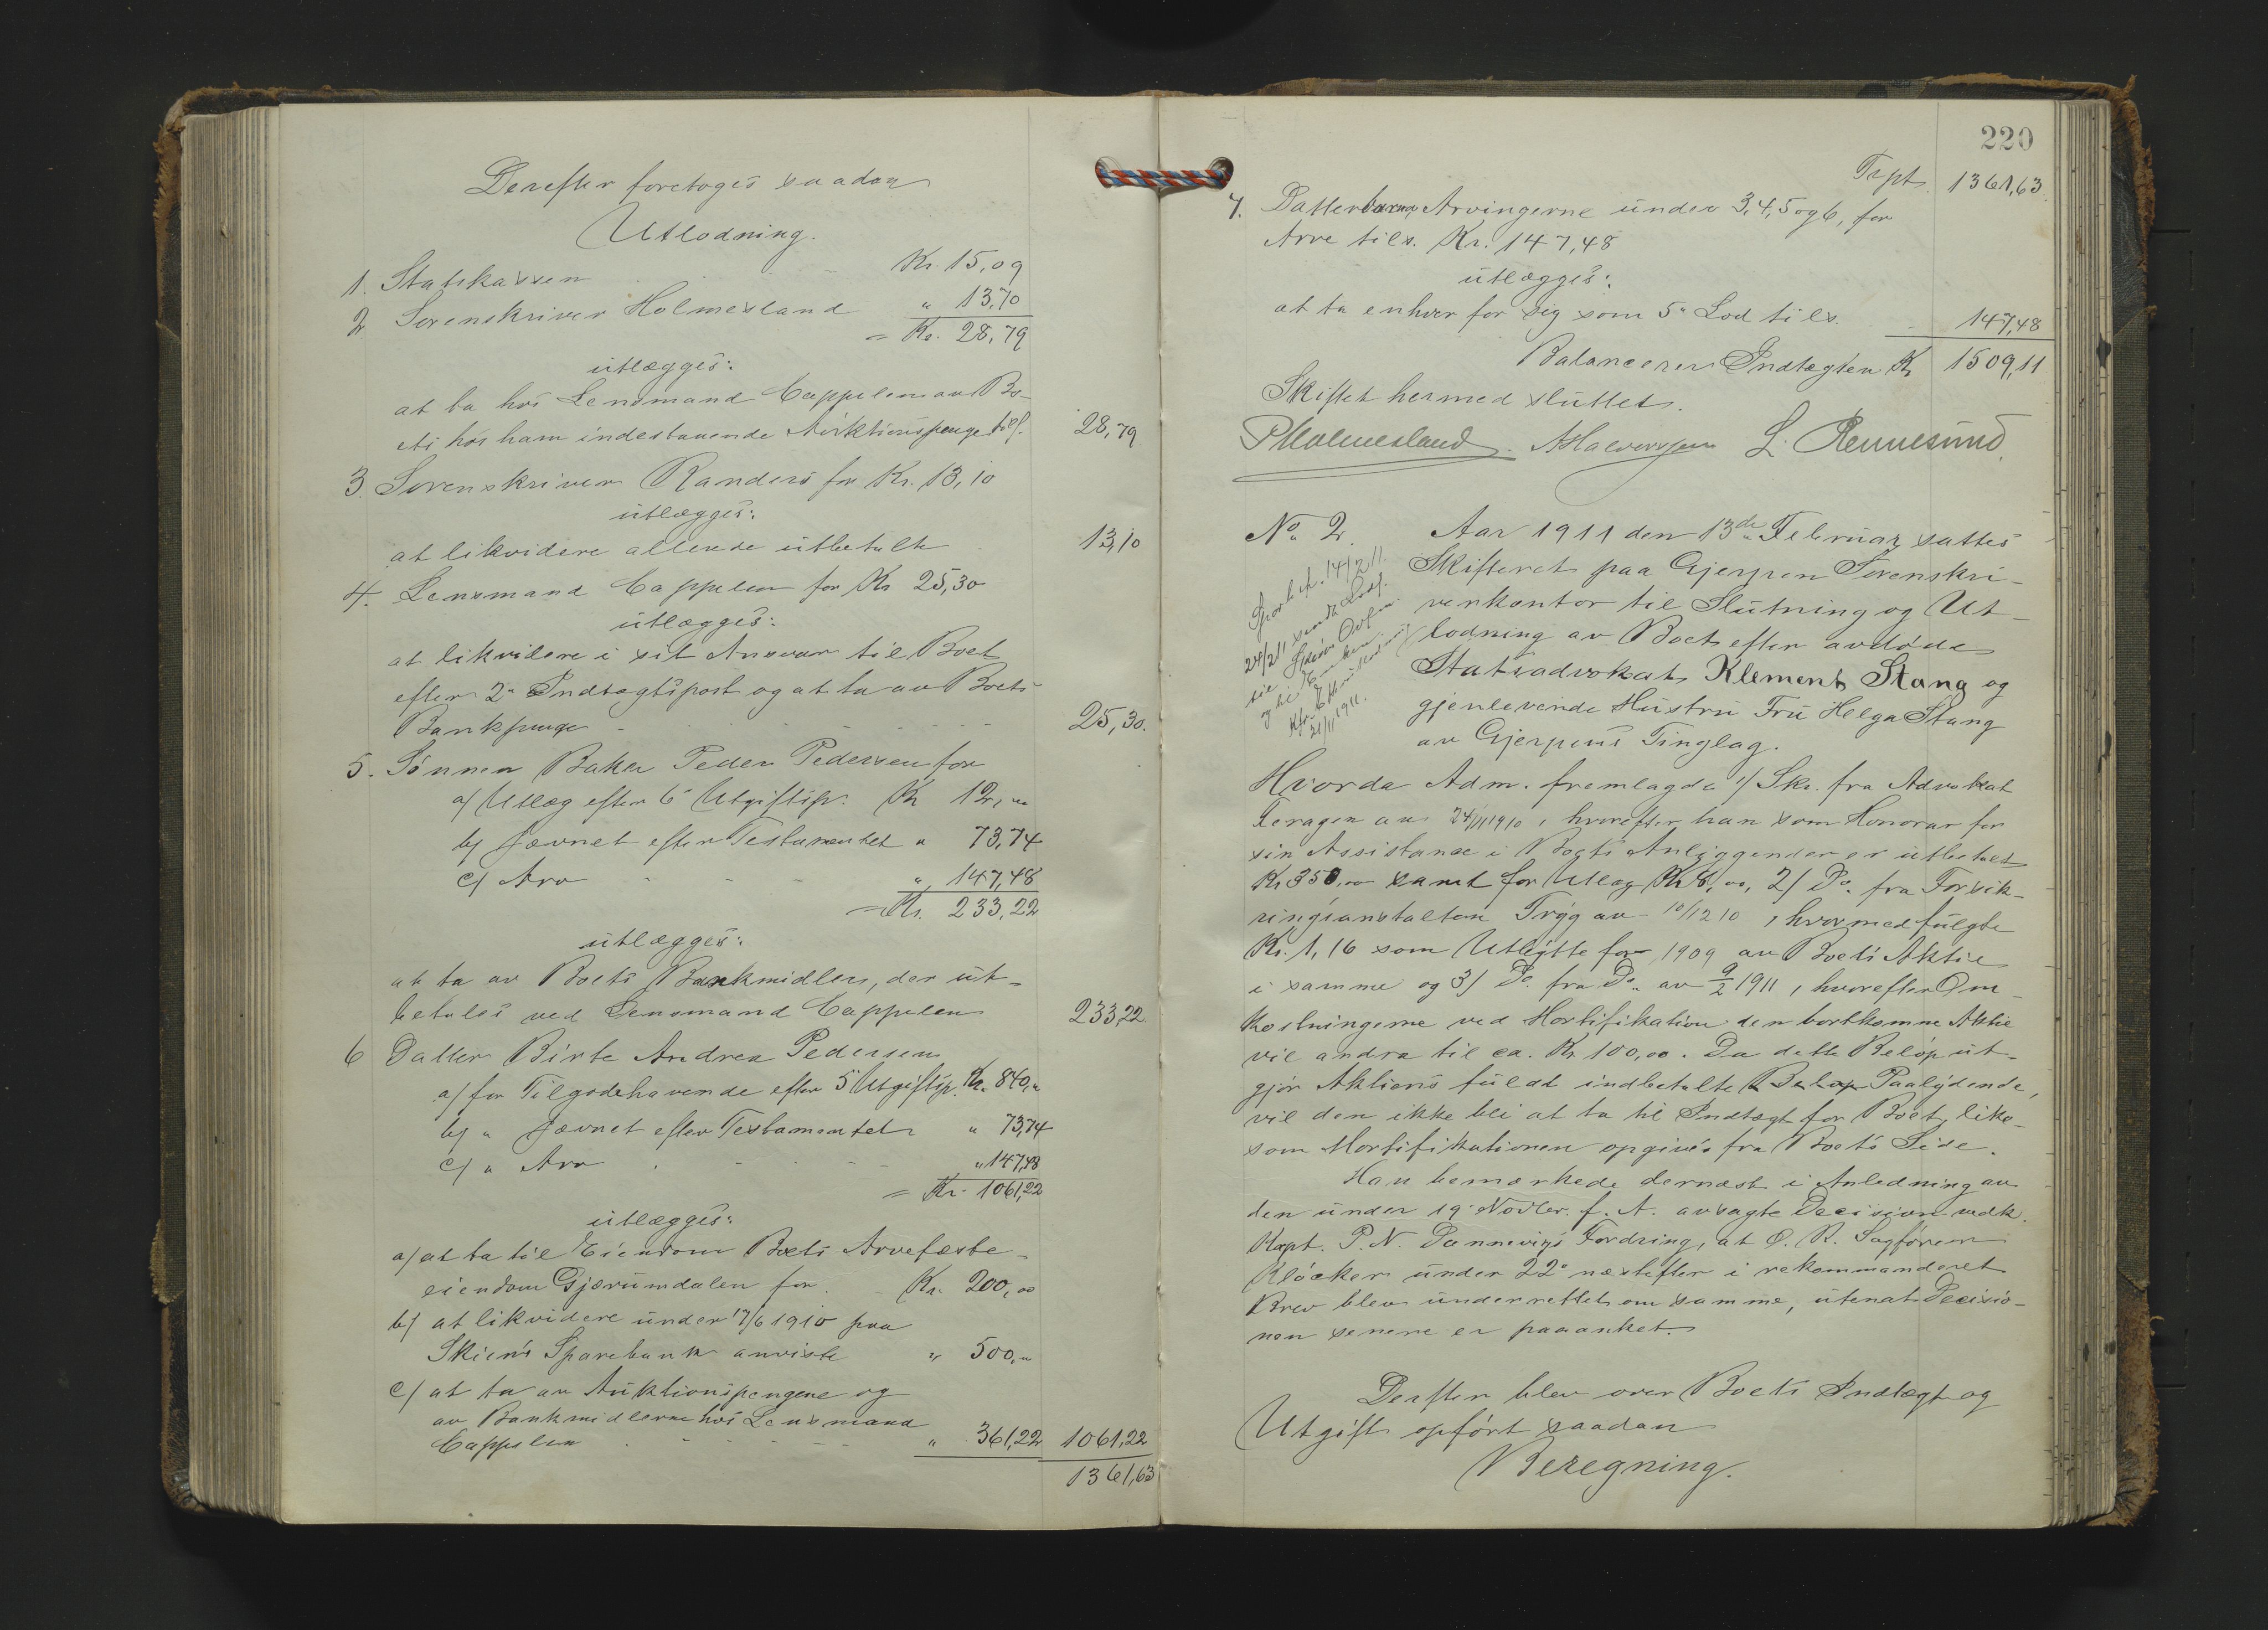 Derefter foretoges saadan
Utlodning.
1. Statskassen Kr. 15,09
2 Sorenskriver Holmesland " 13,70
= Kr. 28,79
utlægges:
at ta hos Lensmand Cappelen av Bo-
ets hos ham indestaaende Auktionspenge tils. 28,79
3. Sorenskriver Randers for Kr. 13,10
utlægges:
at likvidere allerede utbetalt 13,10
4. Lensmand Cappelen for Kr 25,30
utlægges:
at likvidere i sit Ansvar til Boet
efter 2" Indtægtspost og at ta av Boets
Bankpenge 25,30.
5. Sönnen Baker Peder Pedersen for
a/ Utlæg efter 6" Utgiftsp. Kr 12,"
b/ Jævnet efter Testamentet " 73,74
c/ Arv " 147,48
= Kr. 233,22
utlægges:
at ta av Boets Bankmidler, der ut-
betales ved Lensmand Cappelen 233,22
6 Datter Birte Andrea Pedersen
a/ for Tilgodehavende efter 5" Utgiftsp. Kr. 840,"
b/ " Jævnet efter Testamentet " 73,74
c/ " Arv " 147,48
= Kr. 1061,22
utlægges:
a/ at ta til Eiendom Boets Arvefæste-
eiendom Gjerumdalen for Kr. 200,00
b/ at likvidere under 17/6 1910 paa
Skiens Sparebank anviste " 500,"
c/ at ta av Auktionspengene og
av Bankmidlerne hos Lensmand
Cappelen " 361,22 1061,22
1361,63
220
Trpt. 1361,63
7. Datterbarn, Arvingerne under 3, 4, 5 og 6, for
Arv tils. Kr. 147,48
utlægges:
at ta enhver for sig som 5" Lod tils. 147,48
Balancerer Indtægten Kr 1509,11
Skiftet hermed sluttet.
PHolmesland. AHalvorssen L. Rennesund.
No. 2. Aar 1911 den 13de Februar sattes
Skifteret paa Gjerpen Sorenskri-
verkontor til Slutning og Ut-
lodning av Boet efter avdöde
Statsadvokat Klement Stang og
gjenlevende Hustru Fru Helga Stang
av Gjerpens Tinglag.
14/2 11.
24/2 11 sendt
21/11 1911.
Hvorda Adm. fremlagde 1/ Skr. fra Advokat
Feragen av 24/11 1910, hvorefter han som Honorar for
sin Assistance i Boets Anliggender er utbetalt
Kr 350,00 samt for Utlæg Kr 8,00, 2/ Do. fra Forsik-
ringsanstalten Tryg av 10/12 10, hvormed fulgte
Kr. 1,16 som Utbytte for 1909 av Boets Aktie
i samme og 3/ Do. fra Do. av 9/2 1911, hvorefter Om-
kostningerne ved Mortifikation den bortkomne Aktie
vil andra til ca. Kr. 100,00. Da dette Belöp ut-
gjör Aktiens fuldt indbetalte Belöp Paalydende,
vil den ikke bli at ta til Indtægt for Boet, like-
som Mortifikationen opgives fra Boets Side.
Han bemærkede dernæst i Anledning av
den under 19" Novbr. f. A. avsagte Decision vedk.
Kapt. P. N. Dannevigs Fordring, at O. R. Sagförer
Klöcker under 22" næstefter i rekommanderet
Brev blev underrettet om samme, utenat Decisio-
nen senere er paaanket.
Derefter blev over Boets Indtægt og
Utgift opfört saadan
Beregning.